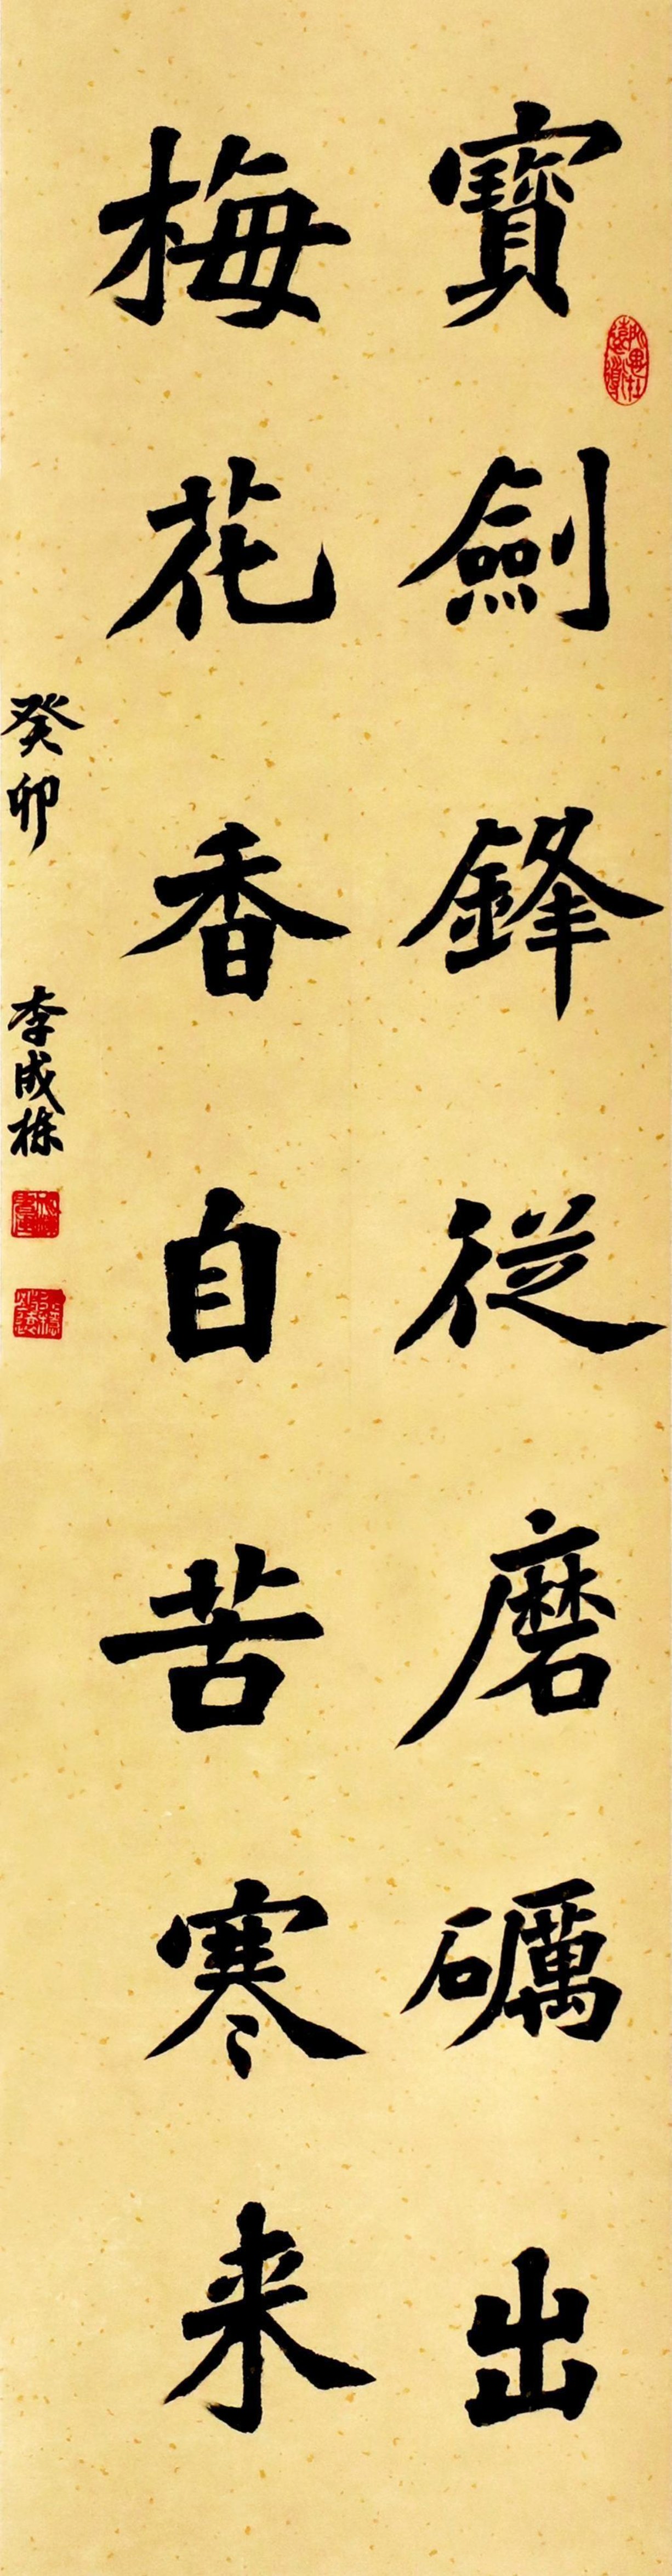 寶劍鋒從磨礪出
梅花香自苦寒来
癸卯 李成栋